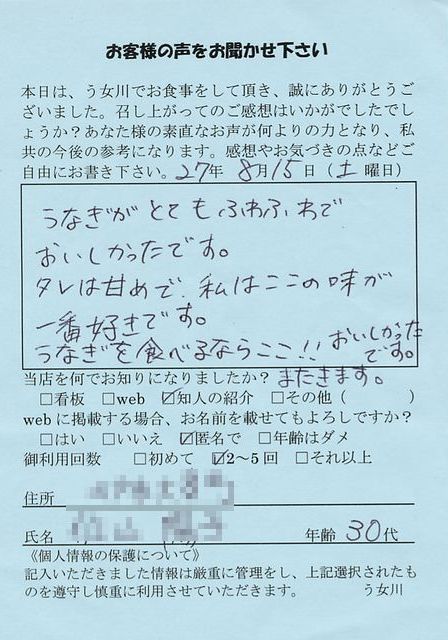 お客様の声をお聞かせ下さい
本日は、う女川でお食事をして頂き、誠にありがとうご
ざいました。召し上がってのご感想はいかがでしたでし
ょうか？あなた様の素直なお声が何よりの力となり、私
共の今後の参考になります。感想やお気づきの点などご
自由にお書き下さい。27年 8月15日（土曜日）
うなぎがとてもふわふわで
おいしかったです。
タレは甘めで、私はここの味が
一番好きです。
うなぎを食べるならここ!! おいしかった
です。
当店を何でお知りになりましたか？またきます。
□看板 □web ☑知人の紹介 □その他（ ）
webに掲載する場合、お名前を載せてもよろしですか？
□はい □いいえ ☑匿名で □年齢はダメ
御利用回数 □初めて ☑2〜5回 □それ以上
住所
氏名 年齢 30代
《個人情報の保護について》
記入いただきました情報は厳重に管理をし、上記選択されたもの
を遵守し慎重に利用させていただきます。 う女川